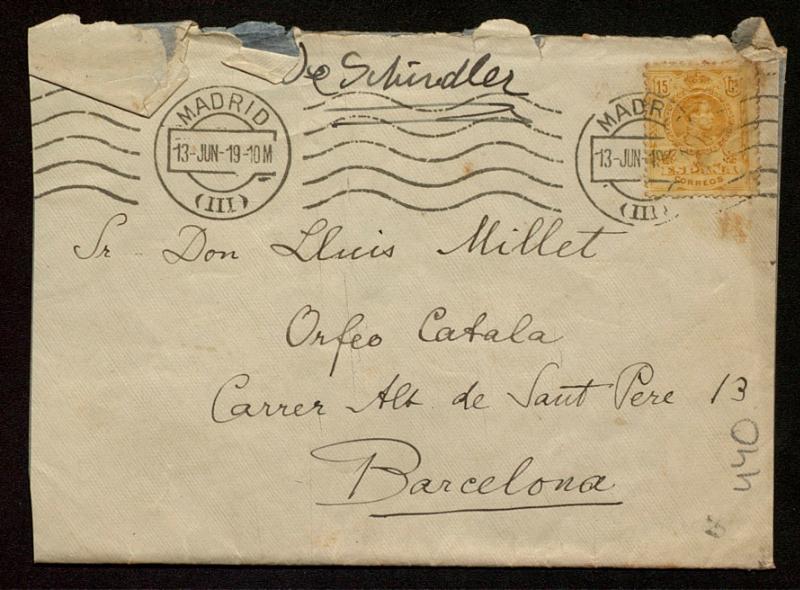 De Schindler
MADRID
13-JUN-19-10M
(III)
MADR
13-JUN-19
(III)
15 Cs
CORREOS
Sr Don Lluis Millet
Orfeo Catala
Carrer Alt de Sant Pere 13
Barcelona
440